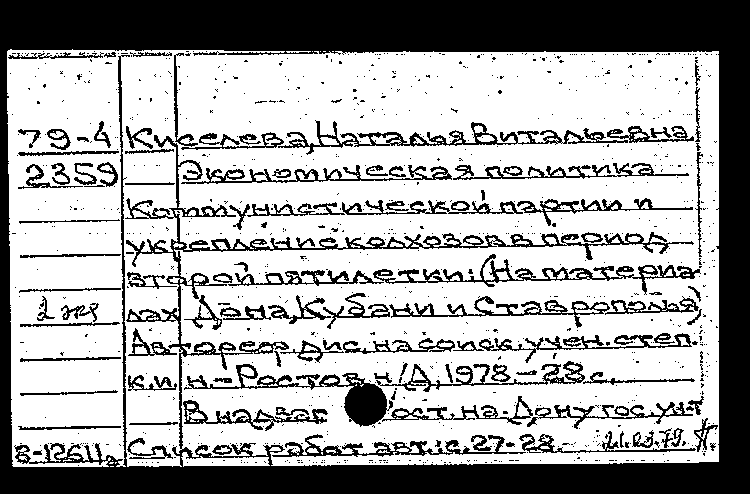 79-4 Киселева, Наталья Витальевна
2359 Экономическая политика
Коммунистической партии и
укрепление колхозов в период
второй пятилетки: (На материа-
2 экз лах Дона, Кубани и Ставрополья)
Автореф. дис. на соиск. учен. степ.
к.и.н. - Ростов н/Д, 1978. - 28 с.
В надзаг ост. на-Дону гос. ун-т
8-12611 Список работ авт.: с. 27-28. - 21.03.79.